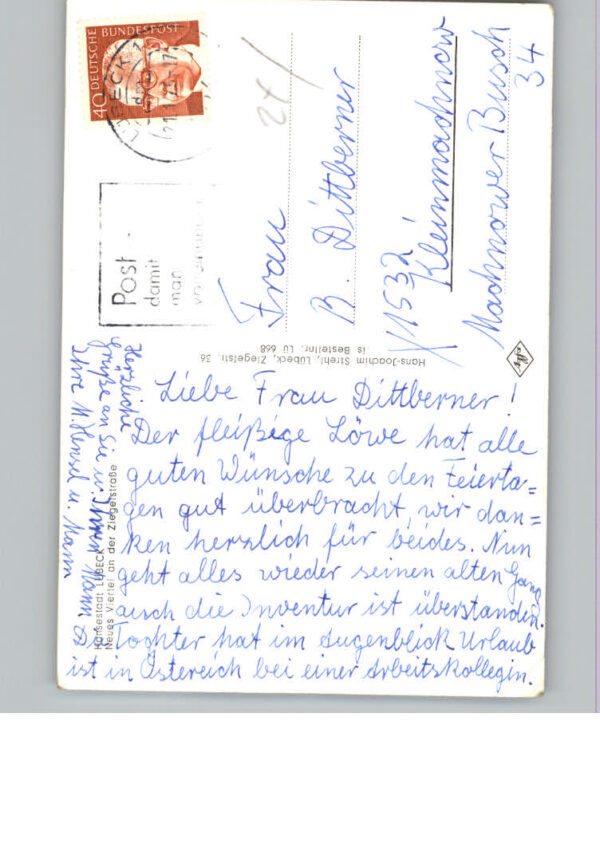 DEUTSCHE BUNDESPOST
40
LÜBECK 1
Post
damit
man
24/
Frau
B. Dittberner
X1532
Kleinmachnow
Machnower Busch
34
Hans-Joachim Strehl, Lübeck, Ziegelstr. 36
is Bestellnr. Lü 668
Liebe Frau Dittberner!
Der fleißige Löwe hat alle
guten Wünsche zu den Feierta=
gen gut überbracht, wir dan=
ken herzlich für beides. Nun
geht alles wieder seinen alten Gang
auch die Inventur ist überstanden.
Tochter hat im Augenblick Urlaub
ist in Östereich bei einer Arbeitskollegin.
Herzliche
Grüße an Sie u. Ihren Mann
Ihre M. Hensel u. Mann
Hansestadt LÜBECK
Neues Viertel an der Ziegelstraße